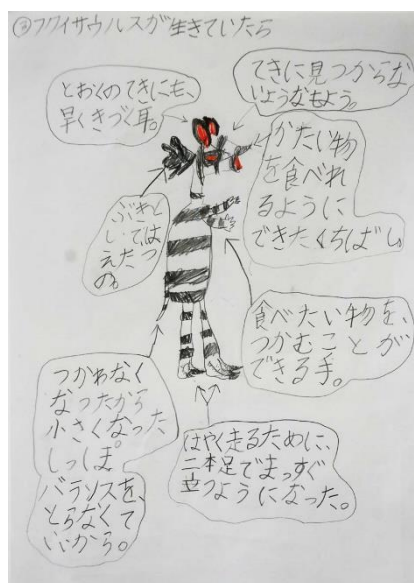 ③フクイサウルスが生きていたら
とおくのてきにも、
早くきづく耳。
てきに見つからな
いようなもよう。
かたい物
を食べれ
るように
できたくちばし。
ぶきと
しては
えたつ
の。
食べたい物を、
つかむことが
できる手。
つかわなく
なったから
小さくなった
しっぽ。
バランスを、
とらなくて
いいから。
はやく走るために、
二本足でまっすぐ
立つようになった。